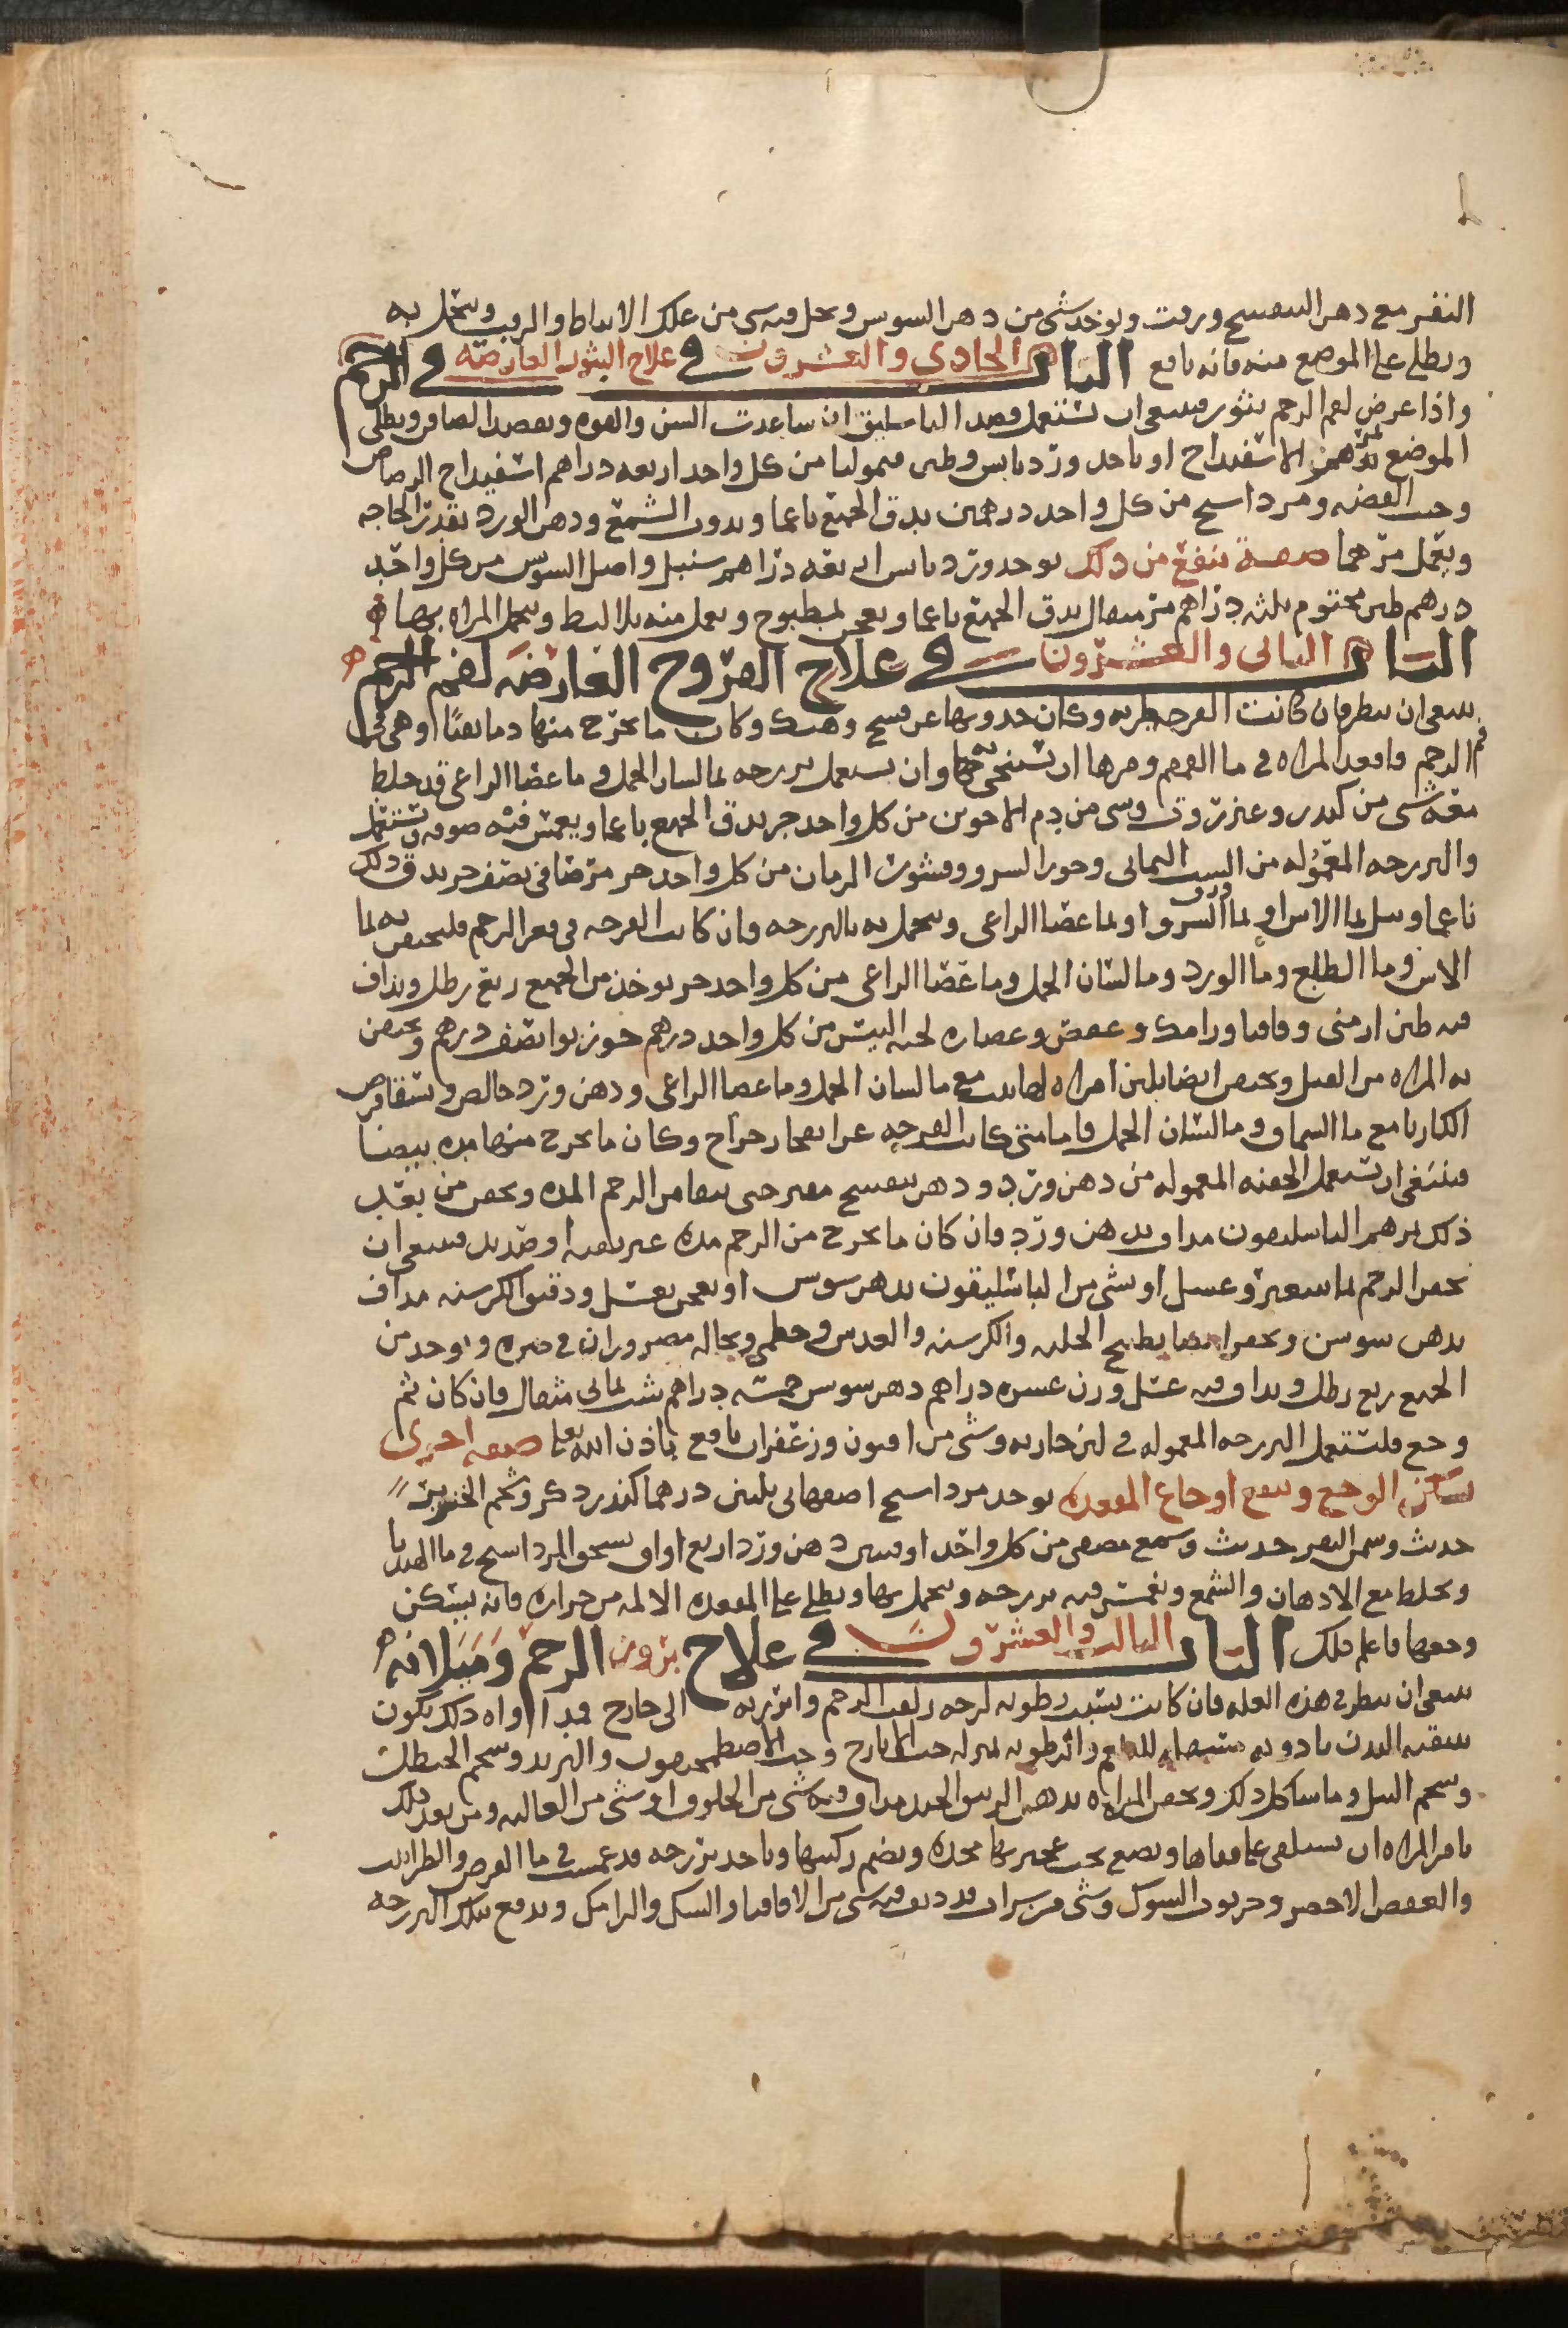 البقر مع دهن البنفسج وزيت ويوخذ شى من دهن السوسن ويحل فيه شى من علك الانباط والزيت ويتحمل به
ويطلى على الموضع منه فانه نافع الباب الحادى والعشرون فى علاج البثور العارضه فى الرحم
واذا عرض لفم الرحم بثور فينبغى ان تستعمل فصد الباسليق ان ساعدت السن والقوه وبفصد الصافن ويطلى
الموضع بمرهم الاسفيداج او ياخذ ورد يابس وطين قيموليا من كل واحد اربعه دراهم اسفيداج الرصاص
وخبث الفضه ومرداسنج من كل واحد درهمين يدق الجميع ناعما ويذوب الشمع ودهن الورد بقدر الحاجه
ويعمل مرهما صفة تنفع من ذلك يوخذ ورد يابس اربعه دراهم سنبل واصل السوس من كل واحد
درهم طين مختوم ثلثه دراهم مر مثقال يدق الجميع ناعما ويعجن بمطبوخ ويعمل منه بلاليط وتتحمل المراه بها
الباب الثانى والعشرون فى علاج القروح العارضه لفم الرحم
ينبغى ان ينظر فان كانت القرحه طريه وكان حدوثها عن فسخ وهتك وكان ما يخرج منها دما نقيا او هى فى
فم الرحم فاقعد المراه فى ماء القمقم ومرها ان تستنجى به وان تستعمل فرزجه بماء لسان الحمل وماء عصا الراعى قد خلط
معه شى من كندر وعنزروت وشى من دم الاخوين من كل واحد جز يدق الجميع ناعما ويغمس فيه صوفه وتستعمل
والفرزجه المعموله من الشب اليمانى وجوز السرو وقشور الرمان من كل واحد جز مر صافى نصف جز يدق ذلك
ناعما ويبل بماء الاس او بماء ورق السرو او بماء عصا الراعى ويتحمل به بالفرزجه فان كانت القرحه فى قعر الرحم فليحتقن به بماء
الاس وماء الطلع وماء الورد وماء لسان الحمل وماء عصا الراعى من كل واحد جز يوخذ من الجميع ربع رطل ويداف
فيه طين ارمنى وقاقيا ورامك وعفص وعصاره لحيه التيس من كل واحد درهم جوزبوا نصف درهم وتحتقن
به المراه من القبل ويحتقن ايضا بلبن امراه مع ماء لسان الحمل وماء عصا الراعى ودهن ورد خالص وتسقا قرص
الكاربا مع ماء السماق وماء لسان الحمل فاما متى كانت القرحه عن انفجار خراج وكان ما يخرج منها مده بيضا
فينبغى ان تستعمل الحقنه المعموله من دهن ورد ودهن بنفسج مفتر حتى ينقا من الرحم المده ويحقن من بعد
ذلك بمرهم الباسليقون مداف بدهن ورد فان كان ما يخرج من الرحم مده غير نقيه او صديد فينبغى ان
يحقن الرحم بماء شعير وعسل او شى من الباسليقون بدهن سوسن او يعجن بعسل ودقيق الكرسنه مداف
بدهن سوسن ويحقن ايضا بطبيخ الحلبه والكرسنه والعدس وخطمى ونخاله مصروران فى صره ويوخذ من
الجميع ربع رطل ويداف فيه عسل وزن عشره دراهم دهن سوسن خمسه دراهم شب يمانى مثقال فان كان ثم
وجع فلتستعمل الفرزجه المعموله فى لبن جاريه وشى من افيون وزعفران نافع باذن الله تعا صفه اخرى
تسكن الوجع وينفع اوجاع المقعده يوخذ مرداسنج اصفهانى ثلثين درهما كندر ذكر وشحم الخنزير
حديث وسمن البقر حديث وشمع مصفى من كل واحد اوقيتين دهن ورد اربع اواق يسحق المرداسنج فى ماء الهندبا
ويخلط مع الادهان والشمع وتغمس فيه فرزجه وتتحمل بها ويطلى على المقعده الالمه من حراره فانه يسكن
وجعها فاعلم ذلك الباب الثالث والعشرون فى علاج بروز الرحم وميلانه
ينبغى ان ينظر فى هذه العله فان كانت بسبب رطوبه لزجه زلقت الرحم وابرزته الى خارج فمداواه ذلك تكون
بتنقيه البدن بادويه مسهله للبلغم والرطوبه بمنزله حب الايارج وحب الاصطمخيقون والتربد وشحم الحنظل
وشحم النيل وما شاكل ذلك ويحقن المراه بدهن الزنبق الجيد مداف فيه شى من الخلوق او شى من الغاليه ومن بعد ذلك
تامر المراه ان تستلقى على قفاها ويضع تحت عجيزتها مخده ويضم ركبتيها وياخذ فرزجه قد غمست فى ماء القرض والطراثيث
والعفص الاخضر وخرنوب الشوك وشى من شراب قد ديف فيه شى من الاقاقيا والسك والرامك ويدفع بتلك الفرزجه